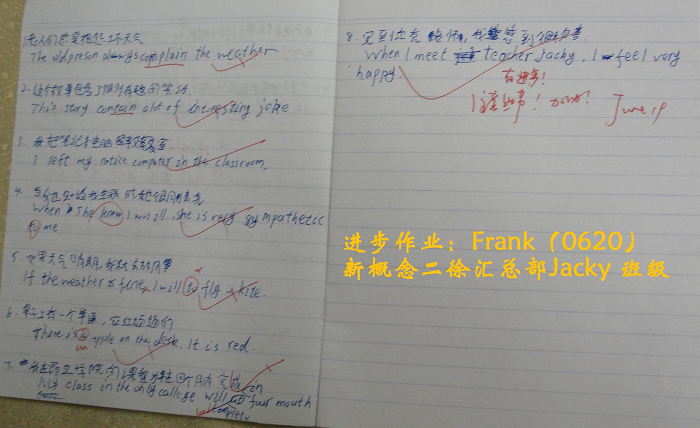 1. 老人们总是抱怨坏天气
The old preson always complain the weather
2. 这个故事包含了很多有趣的笑话
This story contain alot of interesting joke
3. 我把笔记本电脑
I left my notice computer in the classroom,
4. 当她知道我生病时她很同情我
When she know I was ill, she is very sympathetic
to me
5. 如果天气晴朗,我就去放风筝
If the weather is fine, I will to fly a kite.
6. 桌子上有一个苹果,它红
There is a apple on the desk. It is red.
an
7. 我在 学院的课程 个月内完成
My class in the only college will four mouth
in
8. 见到 老师 我感到很
When I meet teacher Jacky, I feel very
happy.
有进步!
加油!
June 19
进步作业:Frank(0620)
新概念二徐汇总部Jacky 班级